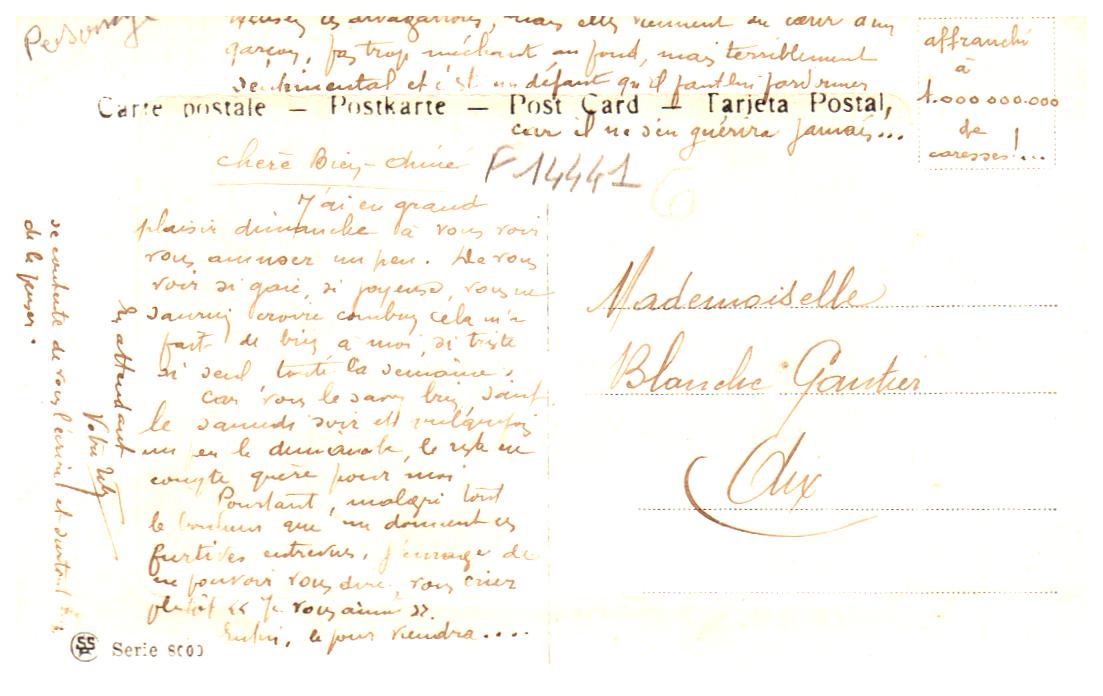 Personnage
pensez ces divagations, mais elles viennent du cœur d'un
garçon, pas trop méchant au fond, mais terriblement
sentimental et c'est un défaut qu'il faut lui pardonner
car il ne s'en guérira jamais...
Carte postale — Postkarte — Post Card — Tarjeta Postal,
affranchi
à
1.000 000.000
de
caresses!...
F14441
6
Chère Bien-Aimée
J'ai eu grand
plaisir dimanche à vous voir
vous amuser un peu. De vous
voir si gaie, si joyeuse, vous ne
sauriez croire combien cela m'a
fait de bien à moi, si triste
si seul, toute la semaine.
Car vous le savez bien, sauf
le samedi soir et quelquefois
un peu le dimanche, le reste ne
compte guère pour moi
Pourtant, malgré tout
le bonheur que me donnent ces
furtives entrevues, j'enrage de
ne pouvoir vous dire, vous crier
plutôt "Je vous aime".
Enfin, le jour viendra....
En attendant
Votre
se contente de vous l'écrire et surtout
de le penser.
Mademoiselle
Blanche Gautier
Aix
Serie 8000